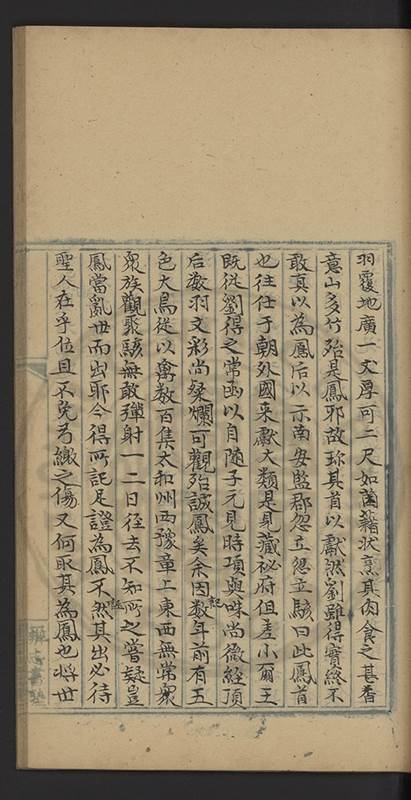 羽覆地廣一丈厚可二尺如菌藉狀烹其肉食之甚香
意山多竹殆是鳳耶故珎其首以獻然劉雖得實終不
敢真以為鳳后以示南安監郡忽立忽立駭曰此鳳首
也往仕于朝外國来獻大類是見藏祕府但差小爾王
既從劉得之常函以自随子元見時頂與味尚微經頂
后數羽文彩尚粲爛可觀殆誠鳳矣余因記數年前有五
色大鳥從以羣數百集太和州西豫章上東西無常衆
衆族觀聚駭無敢彈射一二日径去不知所之嘗疑豈
鳳當亂世而出耶今得所記足證為鳳不然其出必待
聖人在乎位且不免弓繳之傷又何取其為鳳也将世